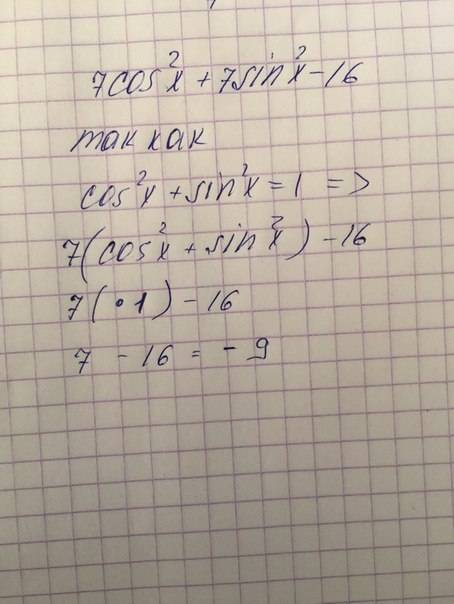 7cos²x + 7sin²x - 16
так как
cos²x + sin²x = 1 =>
7(cos²x + sin²x) - 16
7(•1) - 16
7 - 16 = - 9